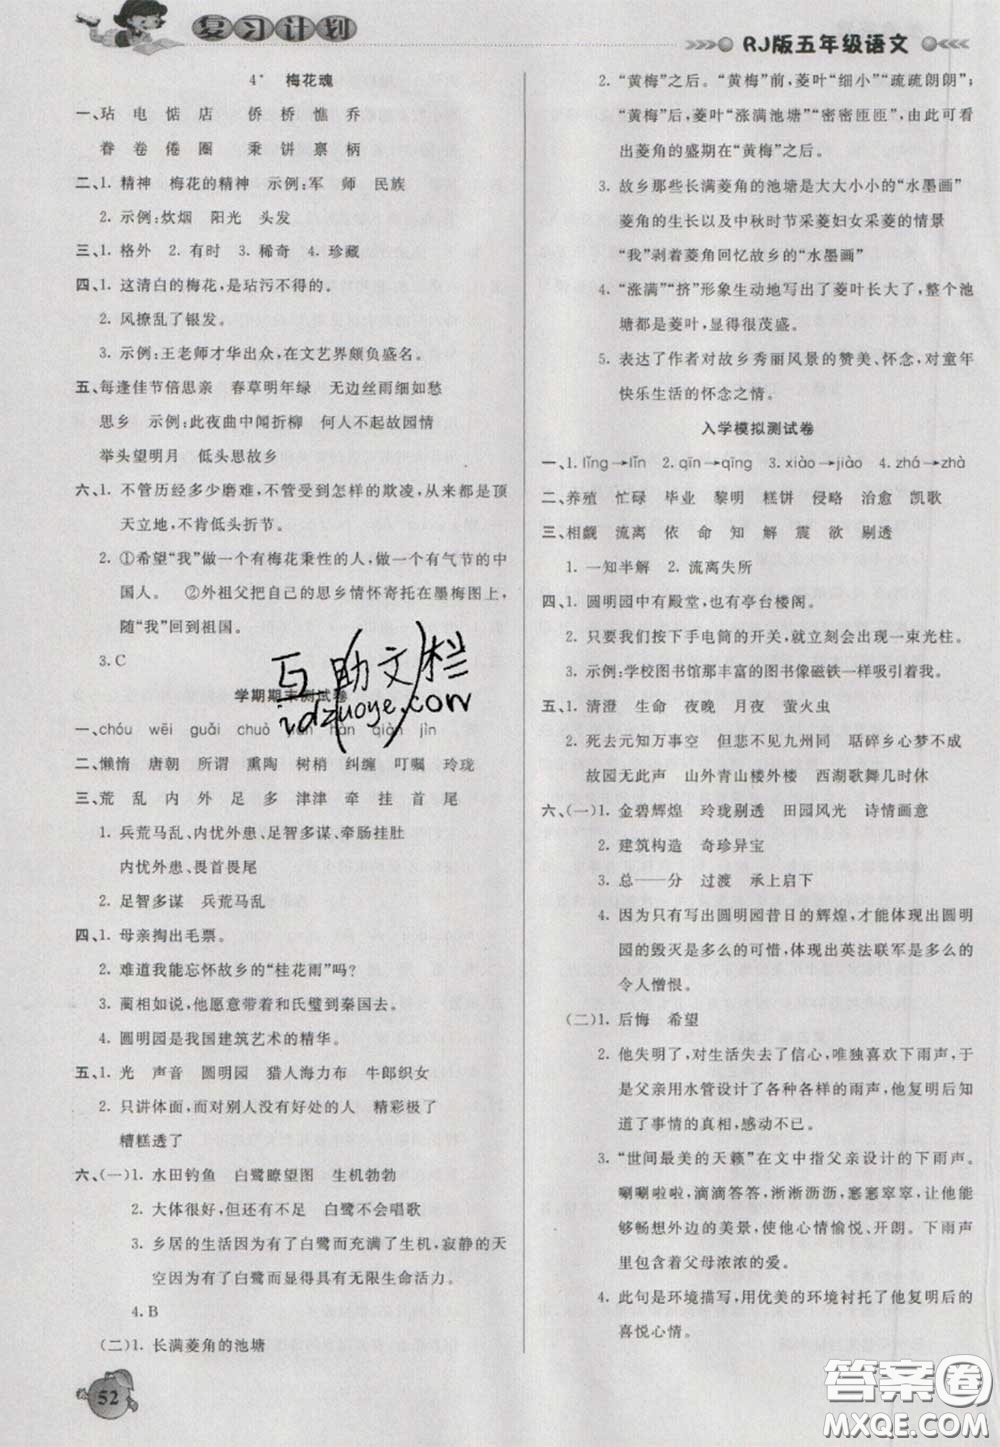 复习计划
RJ版五年级语文
4* 梅花魂
一、玷 电 惦 店 侨 桥 憔 乔
眷 卷 倦 圈 秉 饼 禀 柄
二、1. 精神 梅花的精神 示例:军 师 民族
2. 示例:炊烟 阳光 头发
三、1. 格外 2. 有时 3. 稀奇 4. 珍藏
四、1. 这清白的梅花,是玷污不得的。
2. 风撩乱了银发。
3. 示例:王老师才华出众,在文艺界颇负盛名。
五、每逢佳节倍思亲 春草明年绿 无边丝雨细如愁
思乡 示例:此夜曲中闻折柳 何人不起故园情
举头望明月 低头思故乡
六、1. 不管历经多少磨难,不管受到怎样的欺凌,从来都是顶
天立地,不肯低头折节。
2. ①希望“我”做一个有梅花秉性的人,做一个有气节的中
国人。 ②外祖父把自己的思乡情怀寄托在墨梅图上,
随“我”回到祖国。
3. C
学期期末测试卷
一、chóu wēi guǎi chuò hán qiàn jìn
二、懒惰 唐朝 所谓 熏陶 树梢 纠缠 叮嘱 玲珑
三、荒 乱 内 外 足 多 津津 牵 挂 首 尾
1. 兵荒马乱、内忧外患、足智多谋、牵肠挂肚
内忧外患、畏首畏尾
2. 足智多谋 兵荒马乱
四、1. 母亲掏出毛票。
2. 难道我能忘怀故乡的“桂花雨”吗?
3. 蔺相如说,他愿意带着和氏璧到秦国去。
4. 圆明园是我国建筑艺术的精华。
五、1. 光 声音 圆明园 猎人海力布 牛郎织女
2. 只讲体面,而对别人没有好处的人 精彩极了
糟糕透了
六、(一)1. 水田钓鱼 白鹭瞭望图 生机勃勃
2. 大体很好,但还不足 白鹭不会唱歌
3. 乡居的生活因为有了白鹭而充满了生机,寂静的天
空因为有了白鹭而显得具有无限生命活力。
4. B
(二)1. 长满菱角的池塘
52
2. “黄梅”之后。“黄梅”前,菱叶“细小”“疏疏朗朗”;
“黄梅”后,菱叶“涨满池塘”“密密匝匝”,由此可看
出菱角的盛期在“黄梅”之后。
3. 故乡那些长满菱角的池塘是大大小小的“水墨画”
菱角的生长以及中秋时节采菱妇女采菱的情景
“我”剥着菱角回忆故乡的“水墨画”
4. “涨满”“挤”形象生动地写出了菱叶长大了,整个池
塘都是菱叶,显得很茂盛。
5. 表达了作者对故乡秀丽风景的赞美、怀念,对童年
快乐生活的怀念之情。
入学模拟测试卷
一、1. lǐng→lǐn 2. qīn→qīng 3. xiào→jiào 4. zhá→zhà
二、养殖 忙碌 毕业 黎明 糕饼 侵略 治愈 凯歌
三、相觑 流离 依 命 知 解 震 欲 剔透
1. 一知半解 2. 流离失所
四、1. 圆明园中有殿堂,也有亭台楼阁。
2. 只要我们按下手电筒的开关,就立刻会出现一束光柱。
3. 示例:学校图书馆那丰富的图书像磁铁一样吸引着我。
五、1. 清澄 生命 夜晚 月夜 萤火虫
2. 死去元知万事空 但悲不见九州同 聒碎乡心梦不成
故园无此声 山外青山楼外楼 西湖歌舞几时休
六、(一)1. 金碧辉煌 玲珑剔透 田园风光 诗情画意
2. 建筑构造 奇珍异宝
3. 总——分 过渡 承上启下
4. 因为只有写出圆明园昔日的辉煌,才能体现出圆明
园的毁灭是多么的可惜,体现出英法联军是多么的
令人憎恨。
(二)1. 后悔 希望
2. 他失明了,对生活失去了信心,唯独喜欢下雨声,于
是父亲用水管设计了各种各样的雨声,他复明后知
道了事情的真相,感动不已。
3. “世间最美的天籁”在文中指父亲设计的下雨声。
唰唰啦啦,滴滴答答,淅淅沥沥,窸窸窣窣,让他能
够畅想外边的美景,使他心情愉悦、开朗。下雨声
里包含着父母浓浓的爱。
4. 此句是环境描写,用优美的环境衬托了他复明后的
喜悦心情。
互助文档
idzuoye.com
答案圈
MXQE.COM